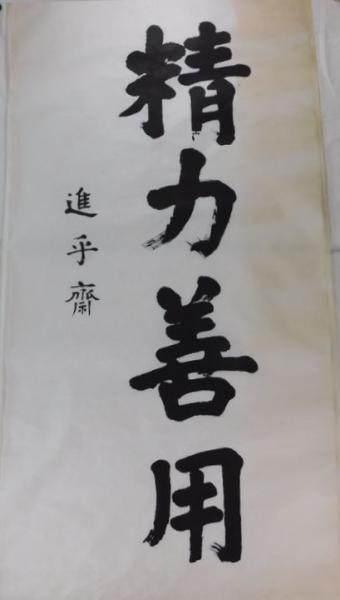 精力善用
進乎齋